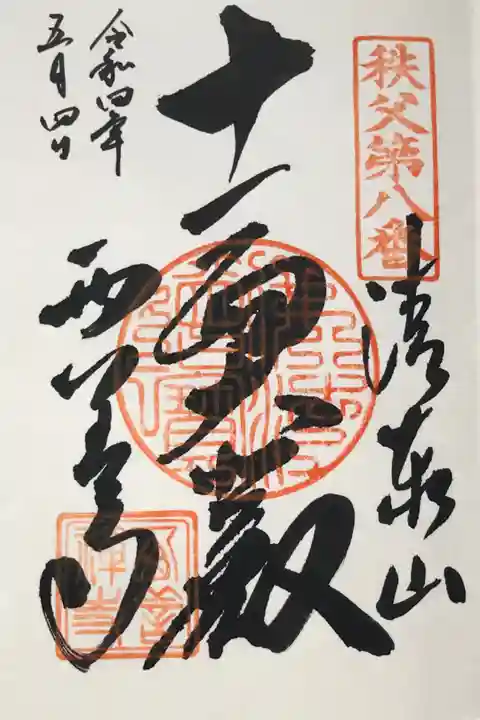 秩父第八番
清泰山
十一面大悲殿
西善寺
令和四年
五月四日